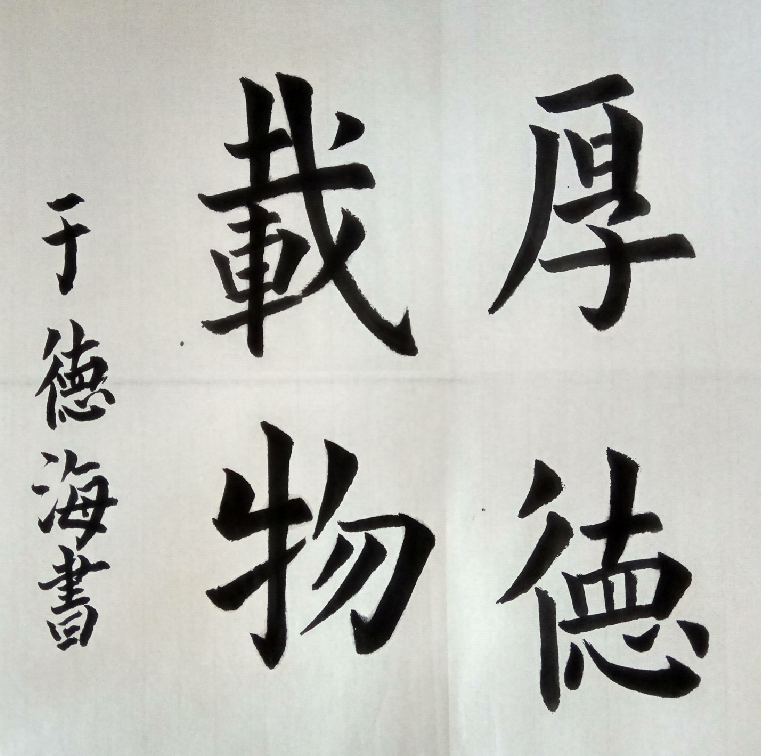 厚德
載物
于德海書